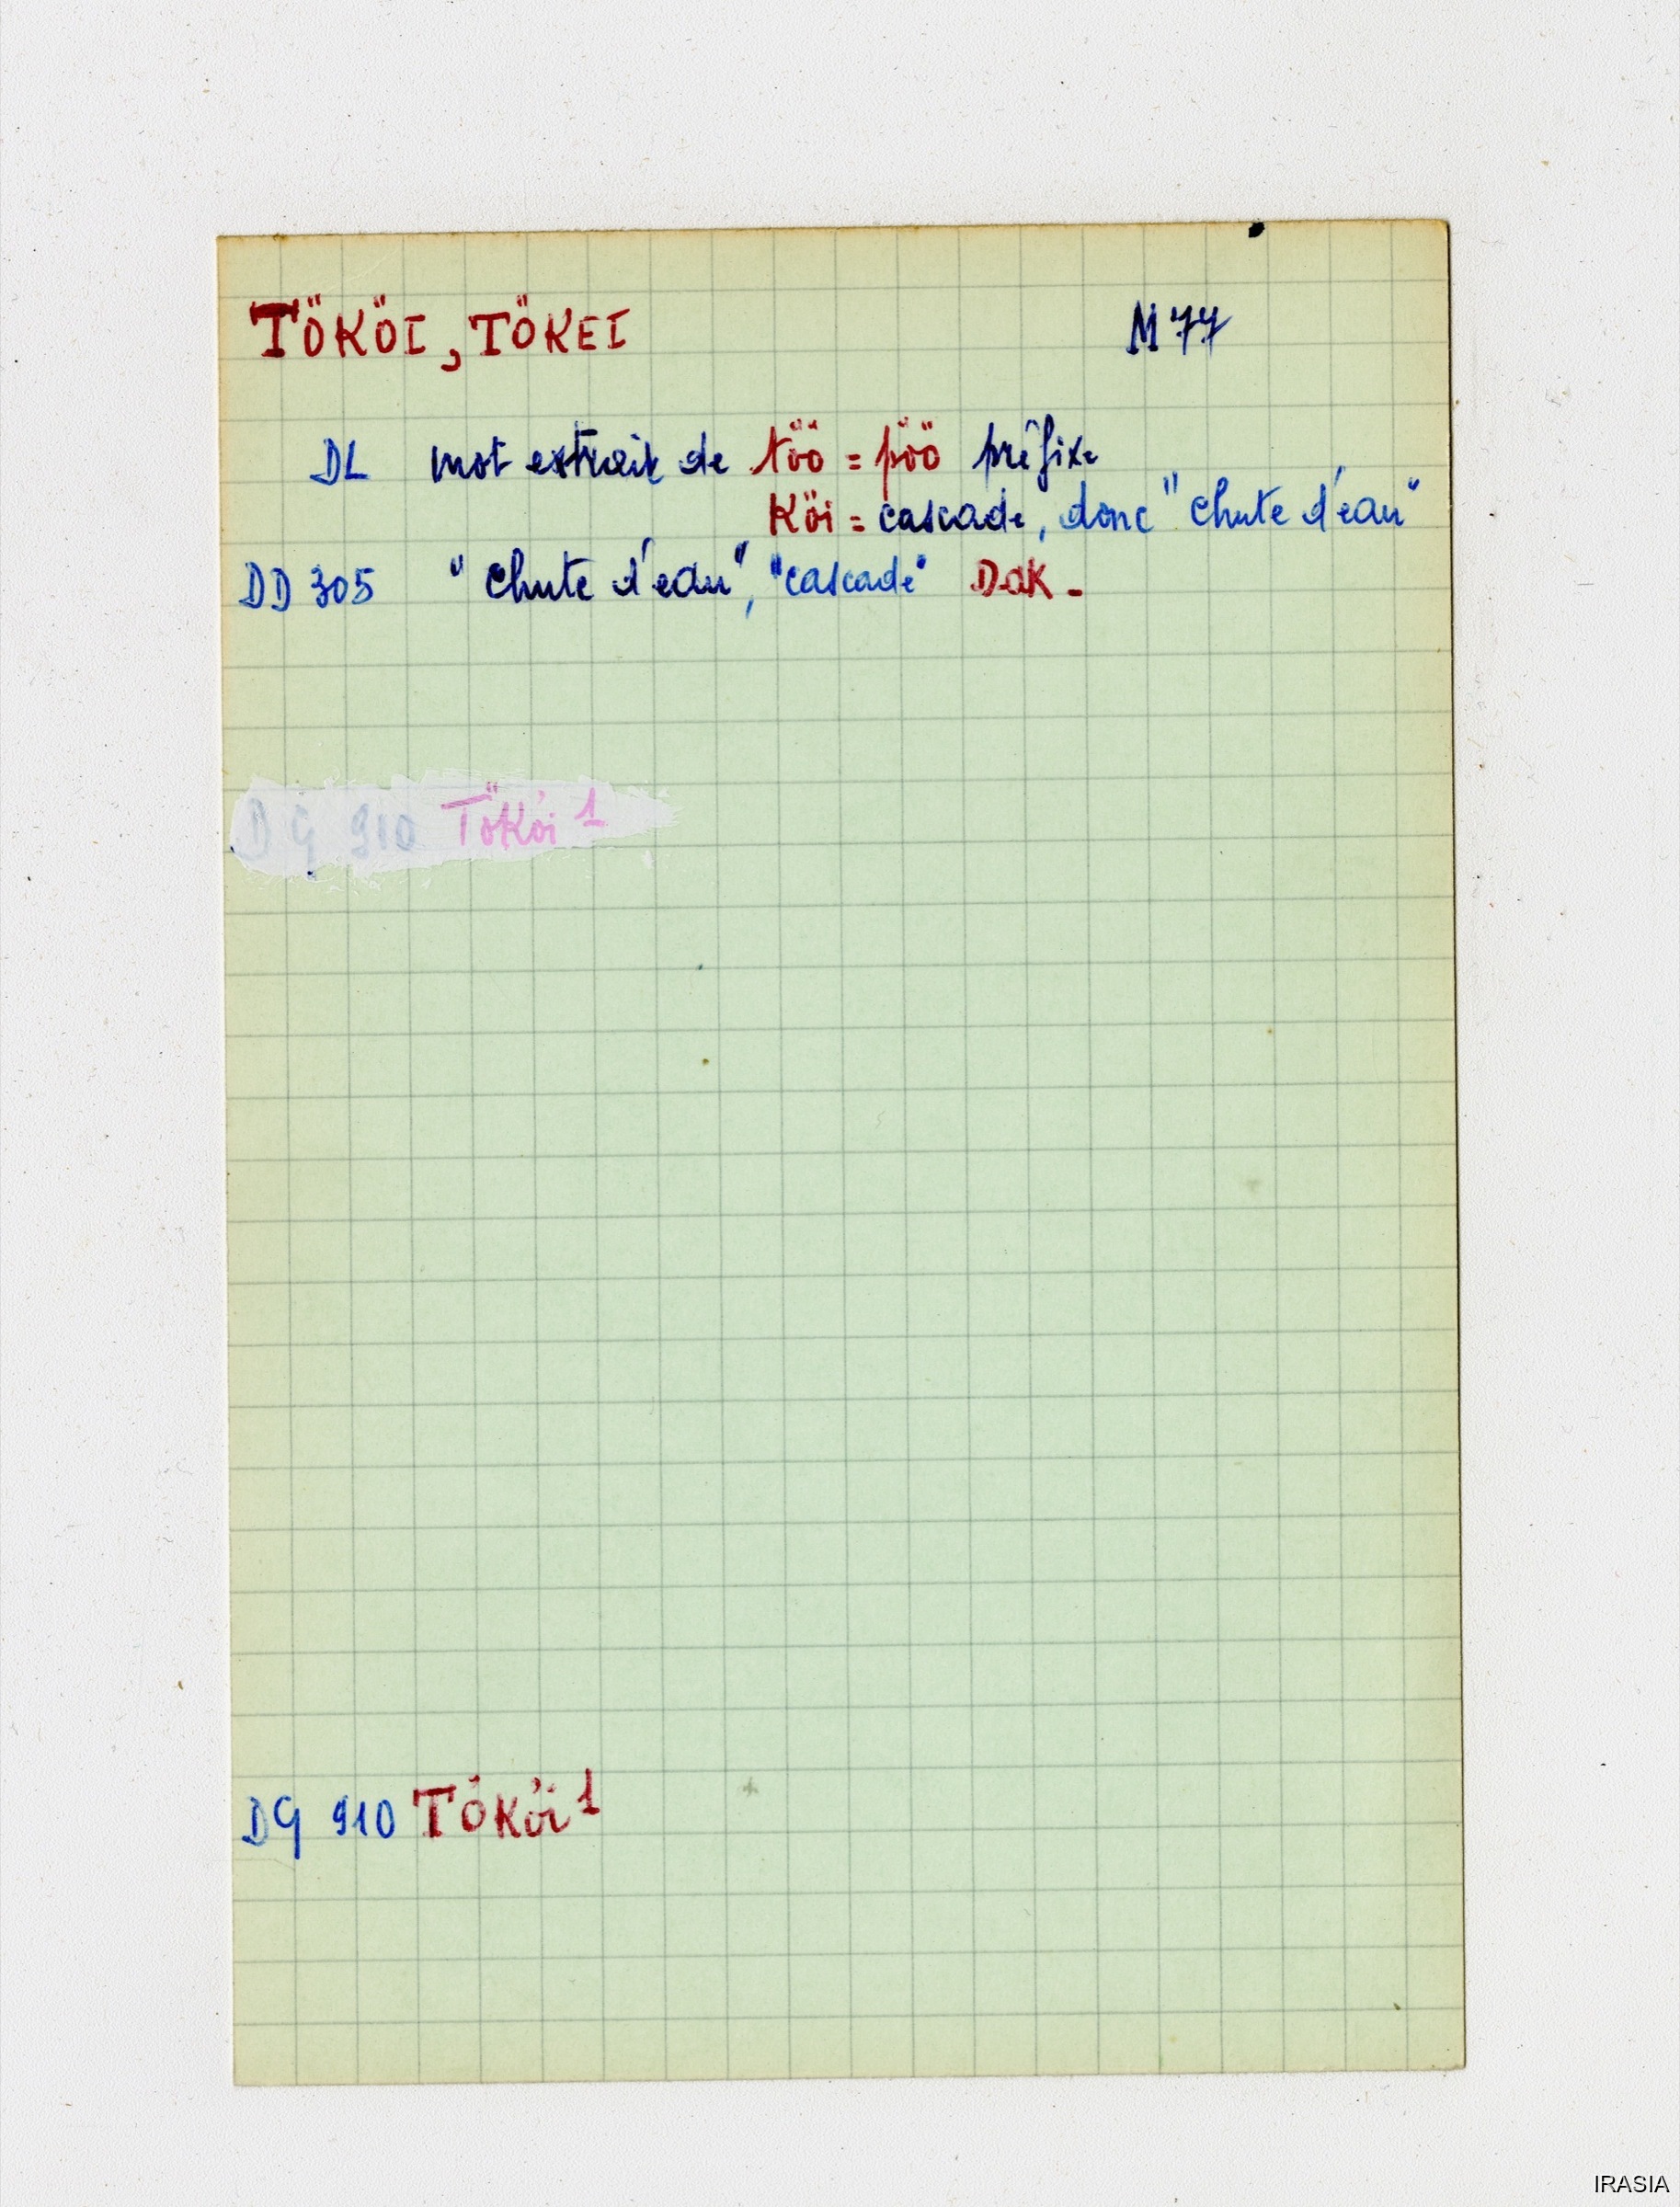 TÖKÖI, TÖKEI M 77
DL mot extrait de töö = pöö préfixe
Köi = cascade, donc "chute d'eau"
DD 305 "chute d'eau", "cascade" DaK -
DG 910 Tököi 1
DG 910 Tököi 1
IRASIA